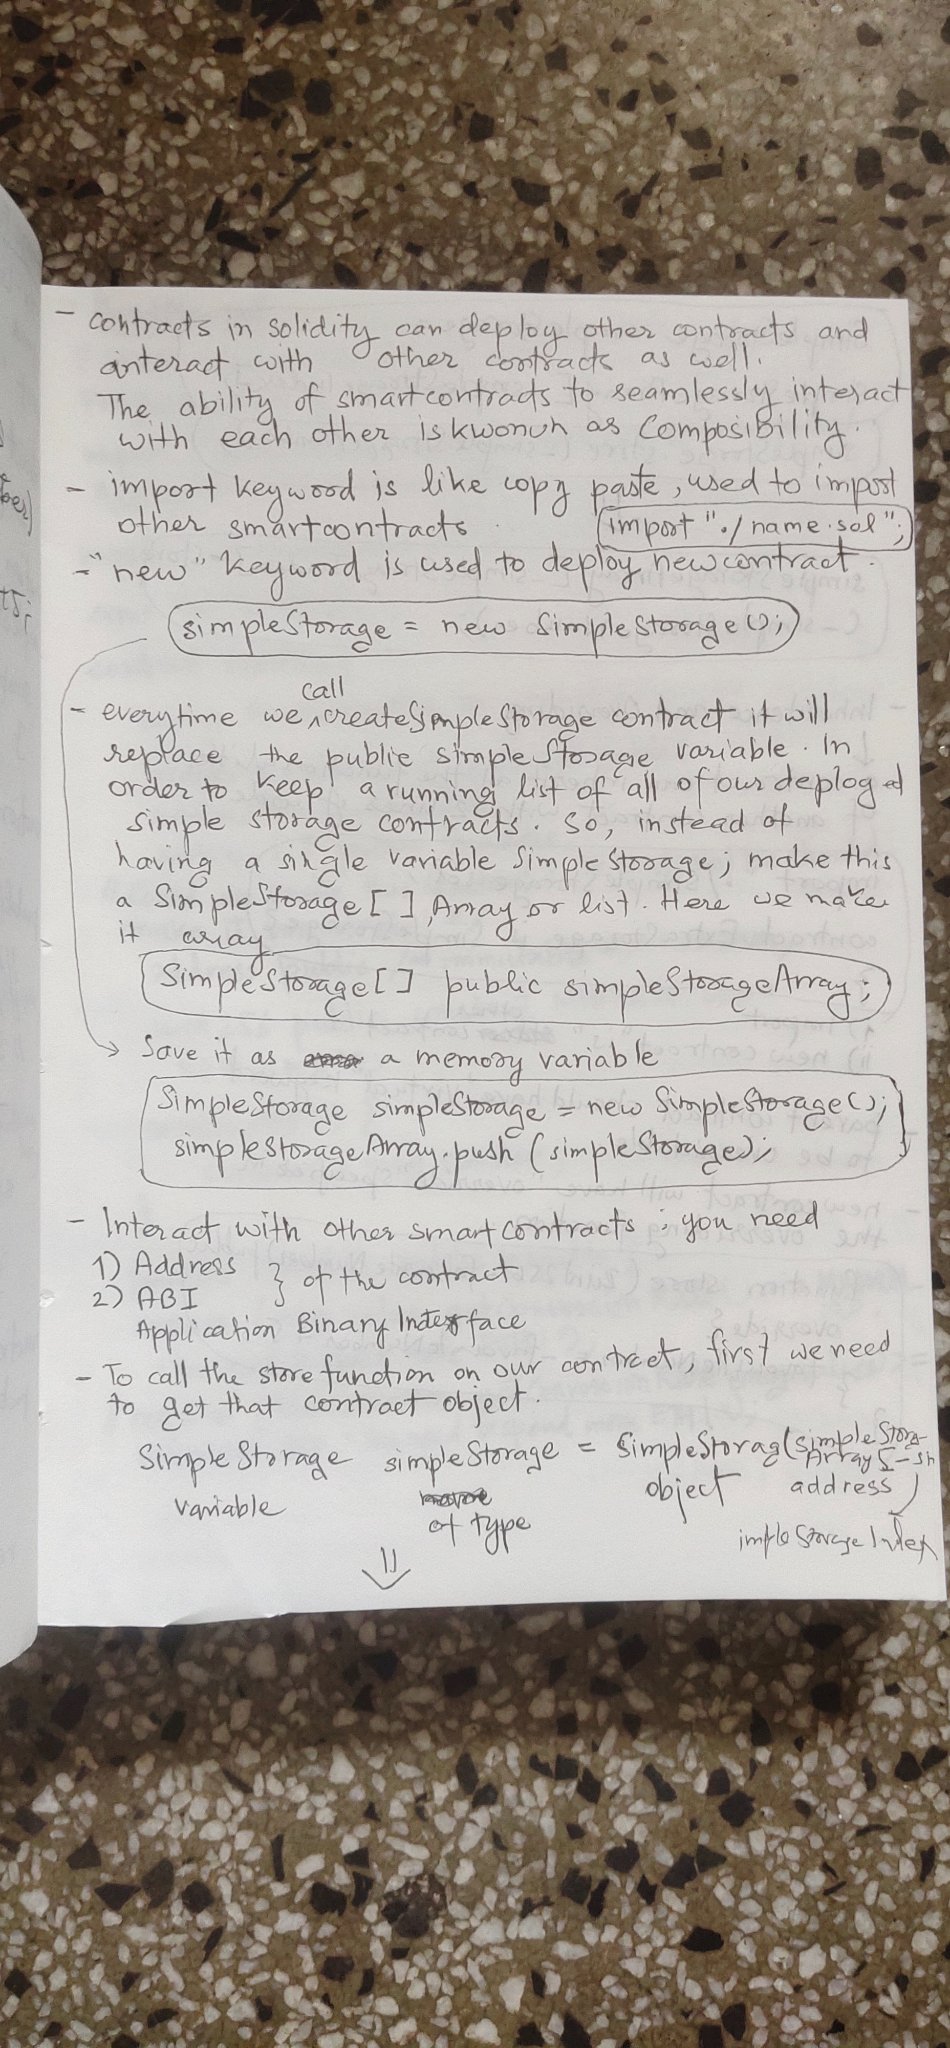 - contracts in solidity can deploy other contracts and
interact with other contracts as well.
The ability of smartcontracts to seamlessly interact
with each other is kwonwn as Composibility.
- import keyword is like copy paste, used to import
other smartcontracts.
import "./name.sol";
- "new" keyword is used to deploy new contract.
simpleStorage = new SimpleStorage();
call
- everytime we ^ createSimpleStorage contract it will
replace the public simpleStorage variable. In
order to keep a running list of all of our deployed
simple storage contracts. So, instead of
having a single variable SimpleStorage; make this
a SimpleStorage[], Array or list. Here we make
it array
SimpleStorage[] public simpleStorageArray;
Save it as a memory variable
SimpleStorage simpleStorage = new SimpleStorage();
simpleStorageArray.push(simpleStorage);
- Interact with other smartcontracts; you need
1) Address } of the contract
2) ABI
Application Binary Interface
- To call the store function on our contract, first we need
to get that contract object.
SimpleStorage simpleStorage = SimpleStorag(simpleStora
Array[-Sn
variable of type object address )
impleStorageIndex